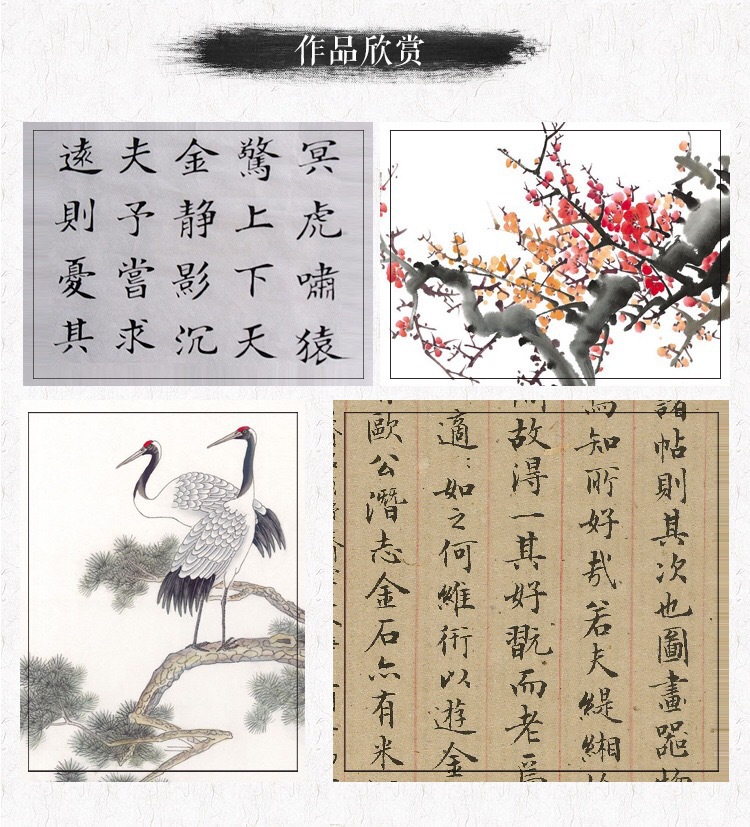 作品欣赏
冥虎嘯猿
驚上下天
金静影沉
夫予嘗求
遠則憂其
諸帖則其次也圖畫器物
為知所好哉若夫緹緗
故得一其好翫而老焉
適：如之何維術以遊金
歐公潛志金石亦有米